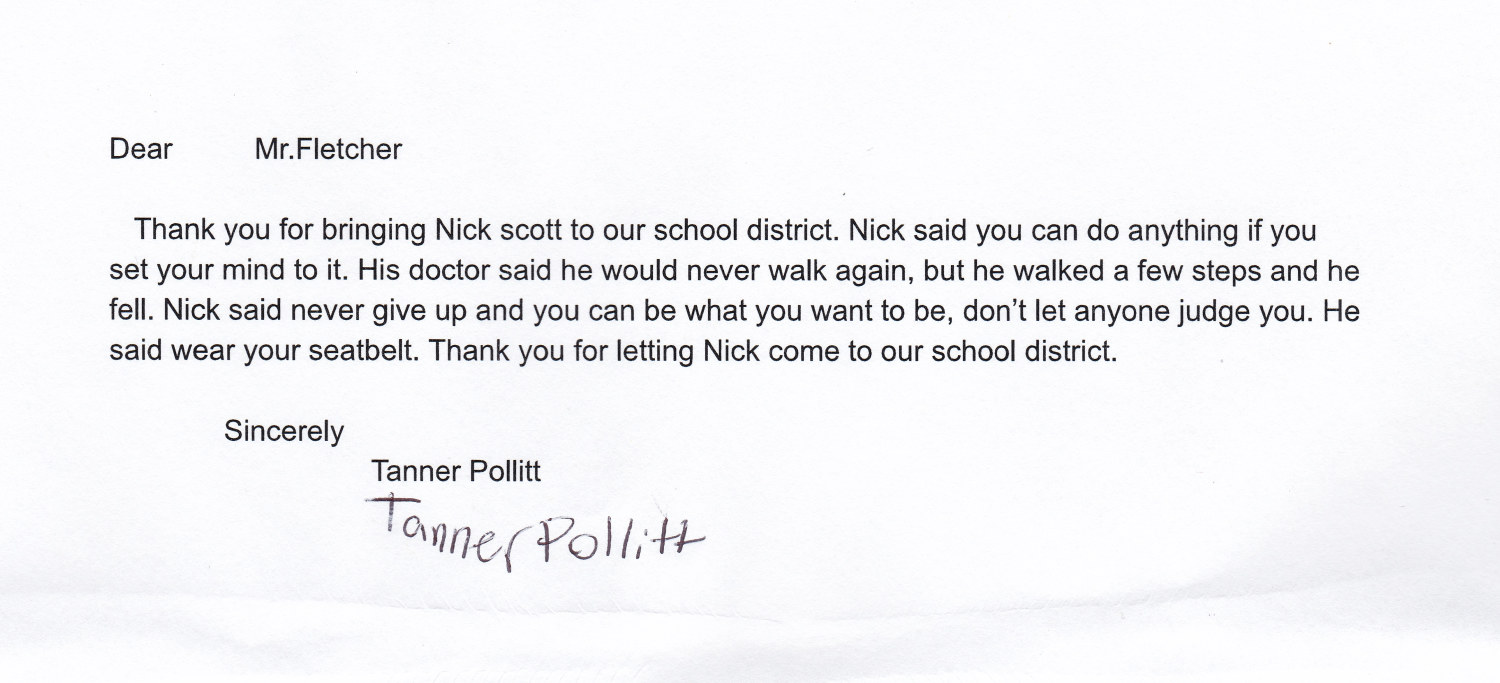 Dear Mr.Fletcher
Thank you for bringing Nick scott to our school district. Nick said you can do anything if you
set your mind to it. His doctor said he would never walk again, but he walked a few steps and he
fell. Nick said never give up and you can be what you want to be, don’t let anyone judge you. He
said wear your seatbelt. Thank you for letting Nick come to our school district.
Sincerely
Tanner Pollitt
Tanner Pollitt